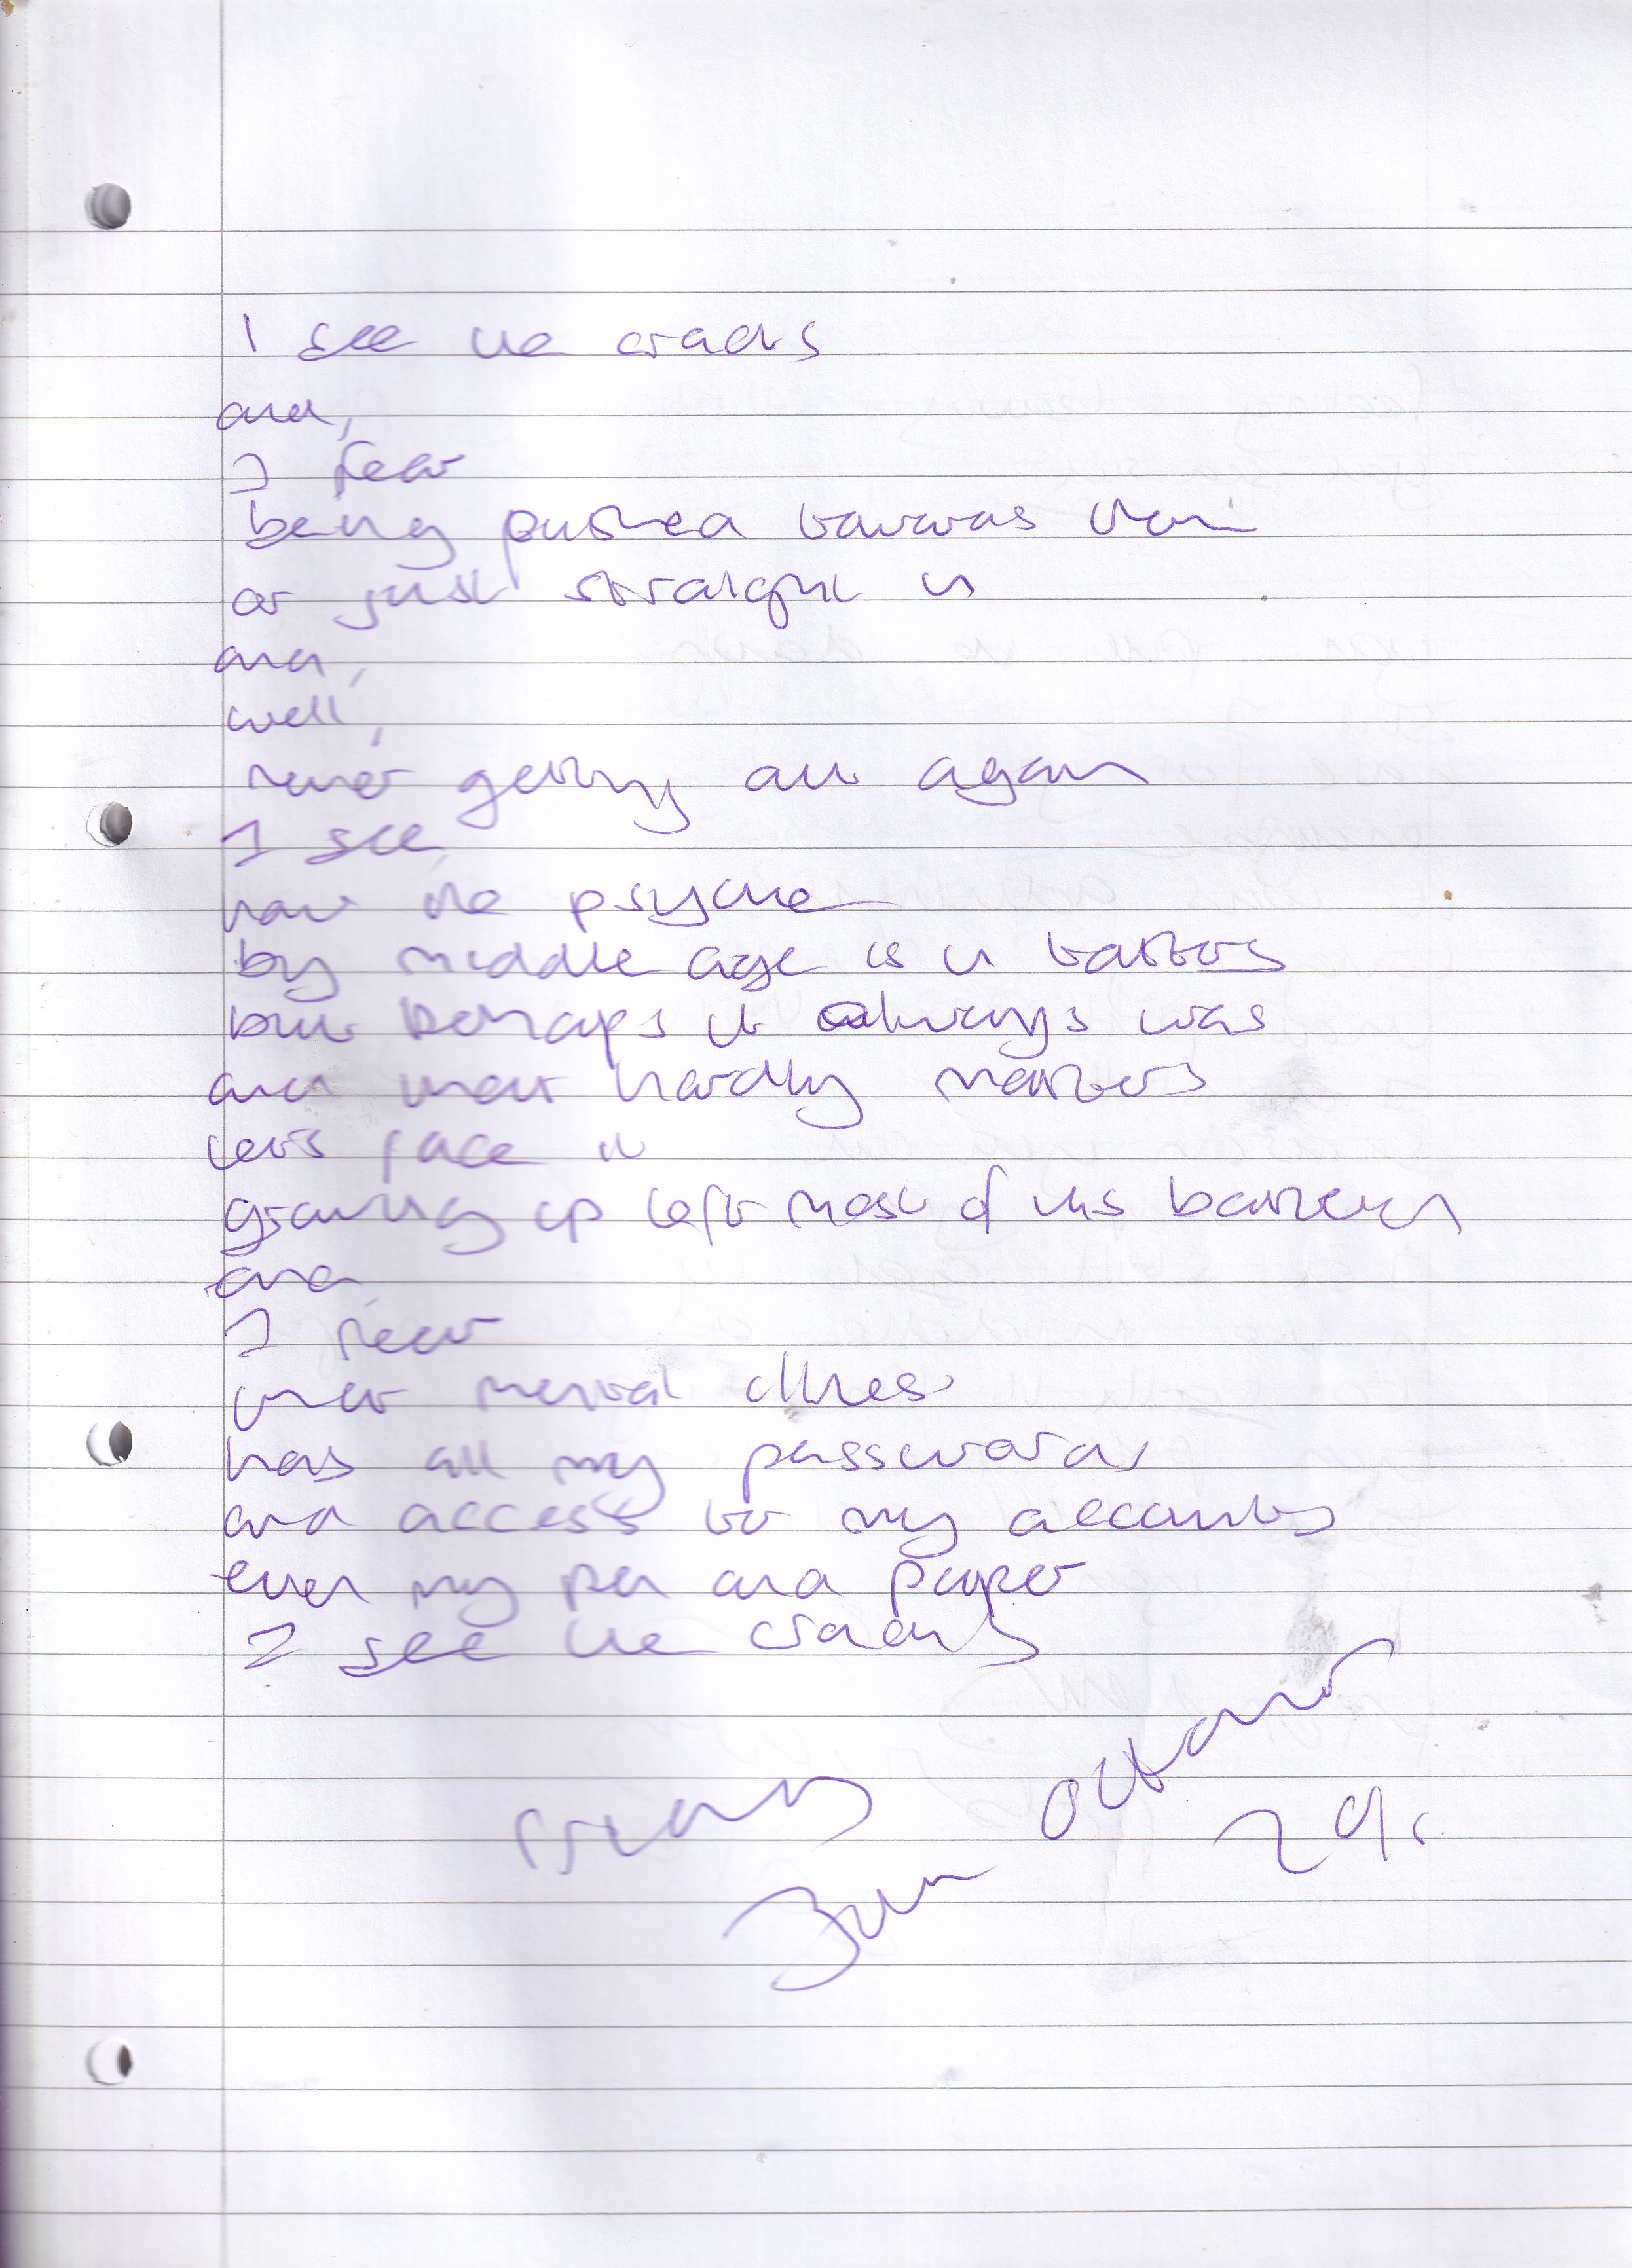 I see the cracks
and,
I fear
being pushed towards them
or just straight in
and,
well,
never getting out again
I see,
how the psyche
by middle age is in tatters
but perhaps it always was
and that hardly matters
lets face it
growing up left most of us battered
and
I fear
that mental illness
has all my passwords
and access to my accounts
even my pen and paper
I see the cracks
October
29.